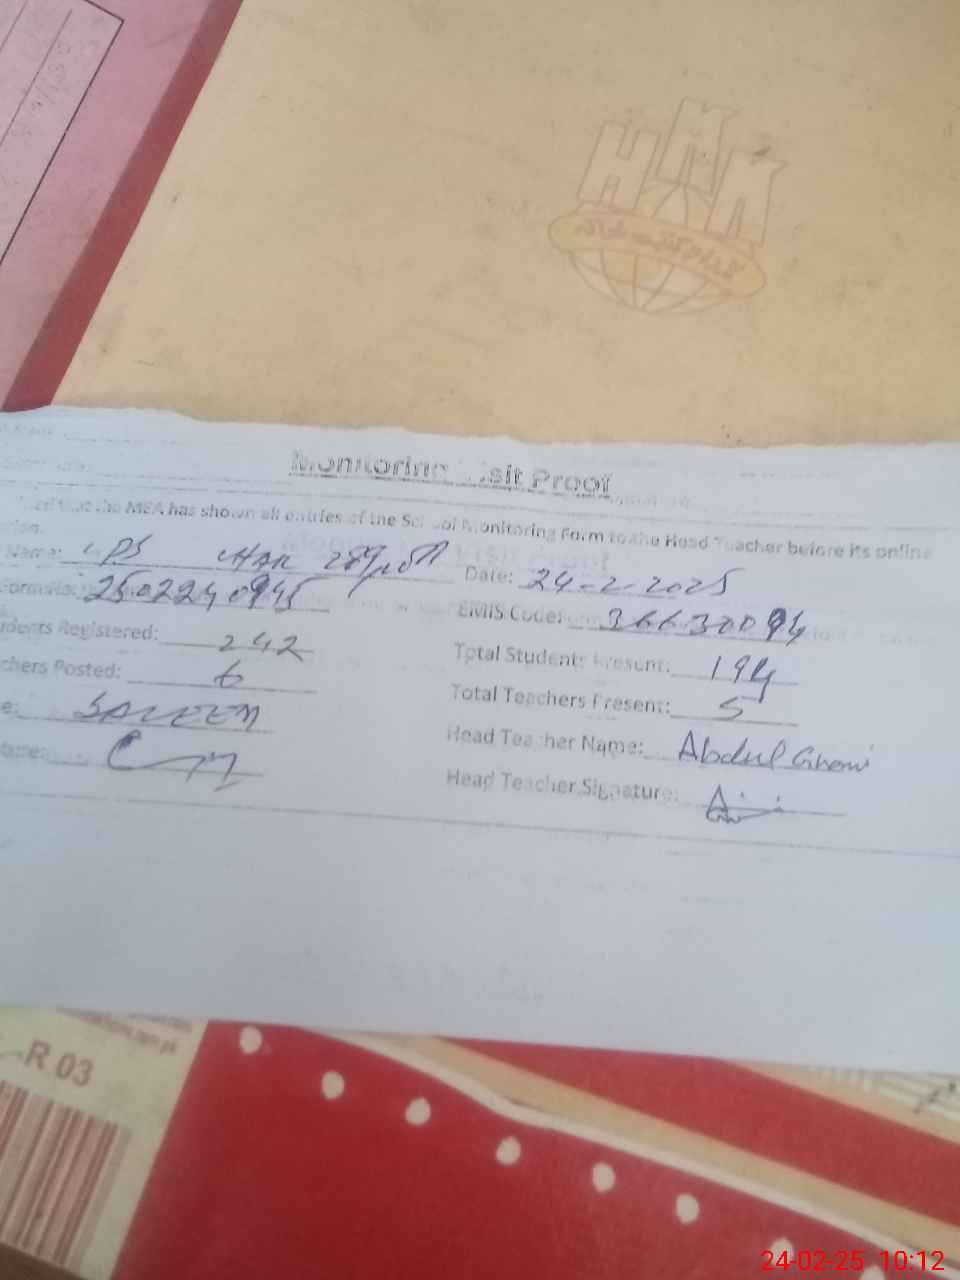 HMK
Monitoring Visit Proof
that the MEA has shown all entries of the School Monitoring Form to the Head Teacher before its online
Name: GPS
Date: 24-2-2025
2502240945
EMIS Code: 36630094
dents Registered: 242
Total Students Present: 194
chers Posted: 6
Total Teachers Present: 5
e: SALEEM
Head Teacher Name: Abdul Ghani
ture:
Head Teacher Signature:
R 03
24-02-25 10:12